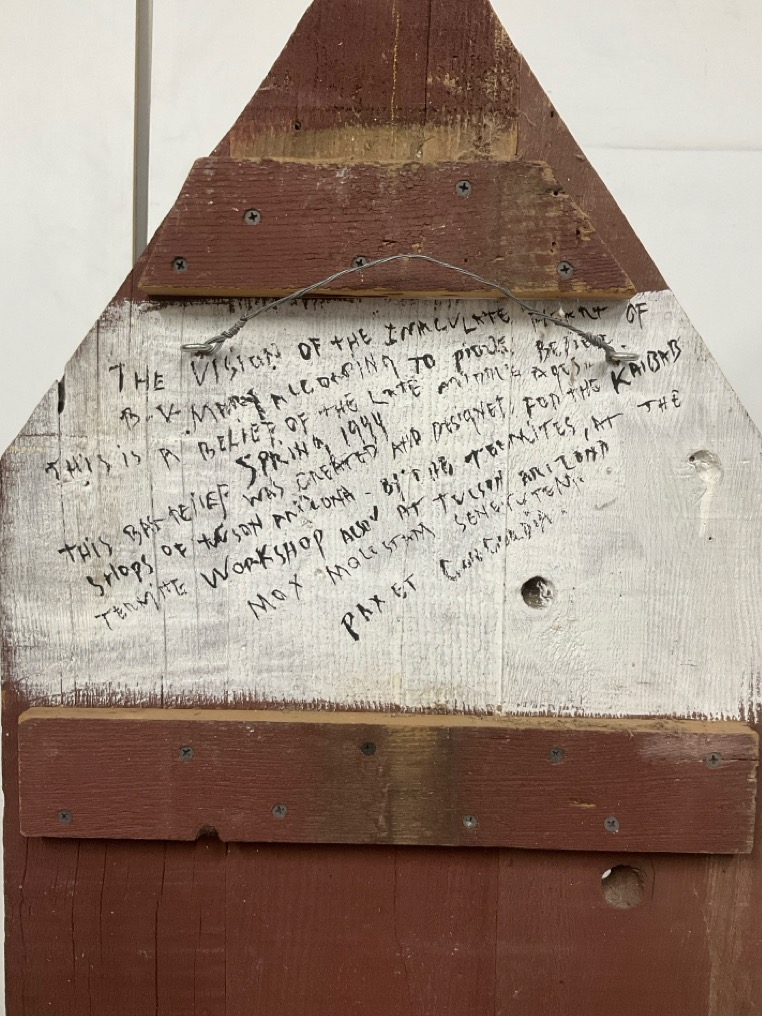 THE VISION OF THE IMACULATE HEART OF
B.V. MARY ACCORDING TO PIOUS BELIEF.
THIS IS A BELIEF OF THE LATE MIDDLE AGES.
SPRING 1994
THIS BAS RELIEF WAS CREATED AND DESIGNED FOR THE KAIBAB
SHOPS OF TUCSON ARIZONA. BY THE TERMITES, AT THE
TERMITE WORKSHOP ALSO AT TUCSON ARIZONA
MAX
PAX ET